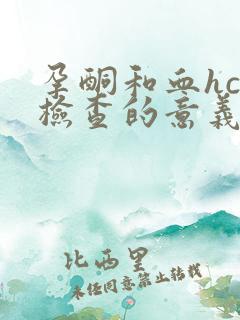 孕酮和血hc
检查的意义
比西里
未经同意禁止转载